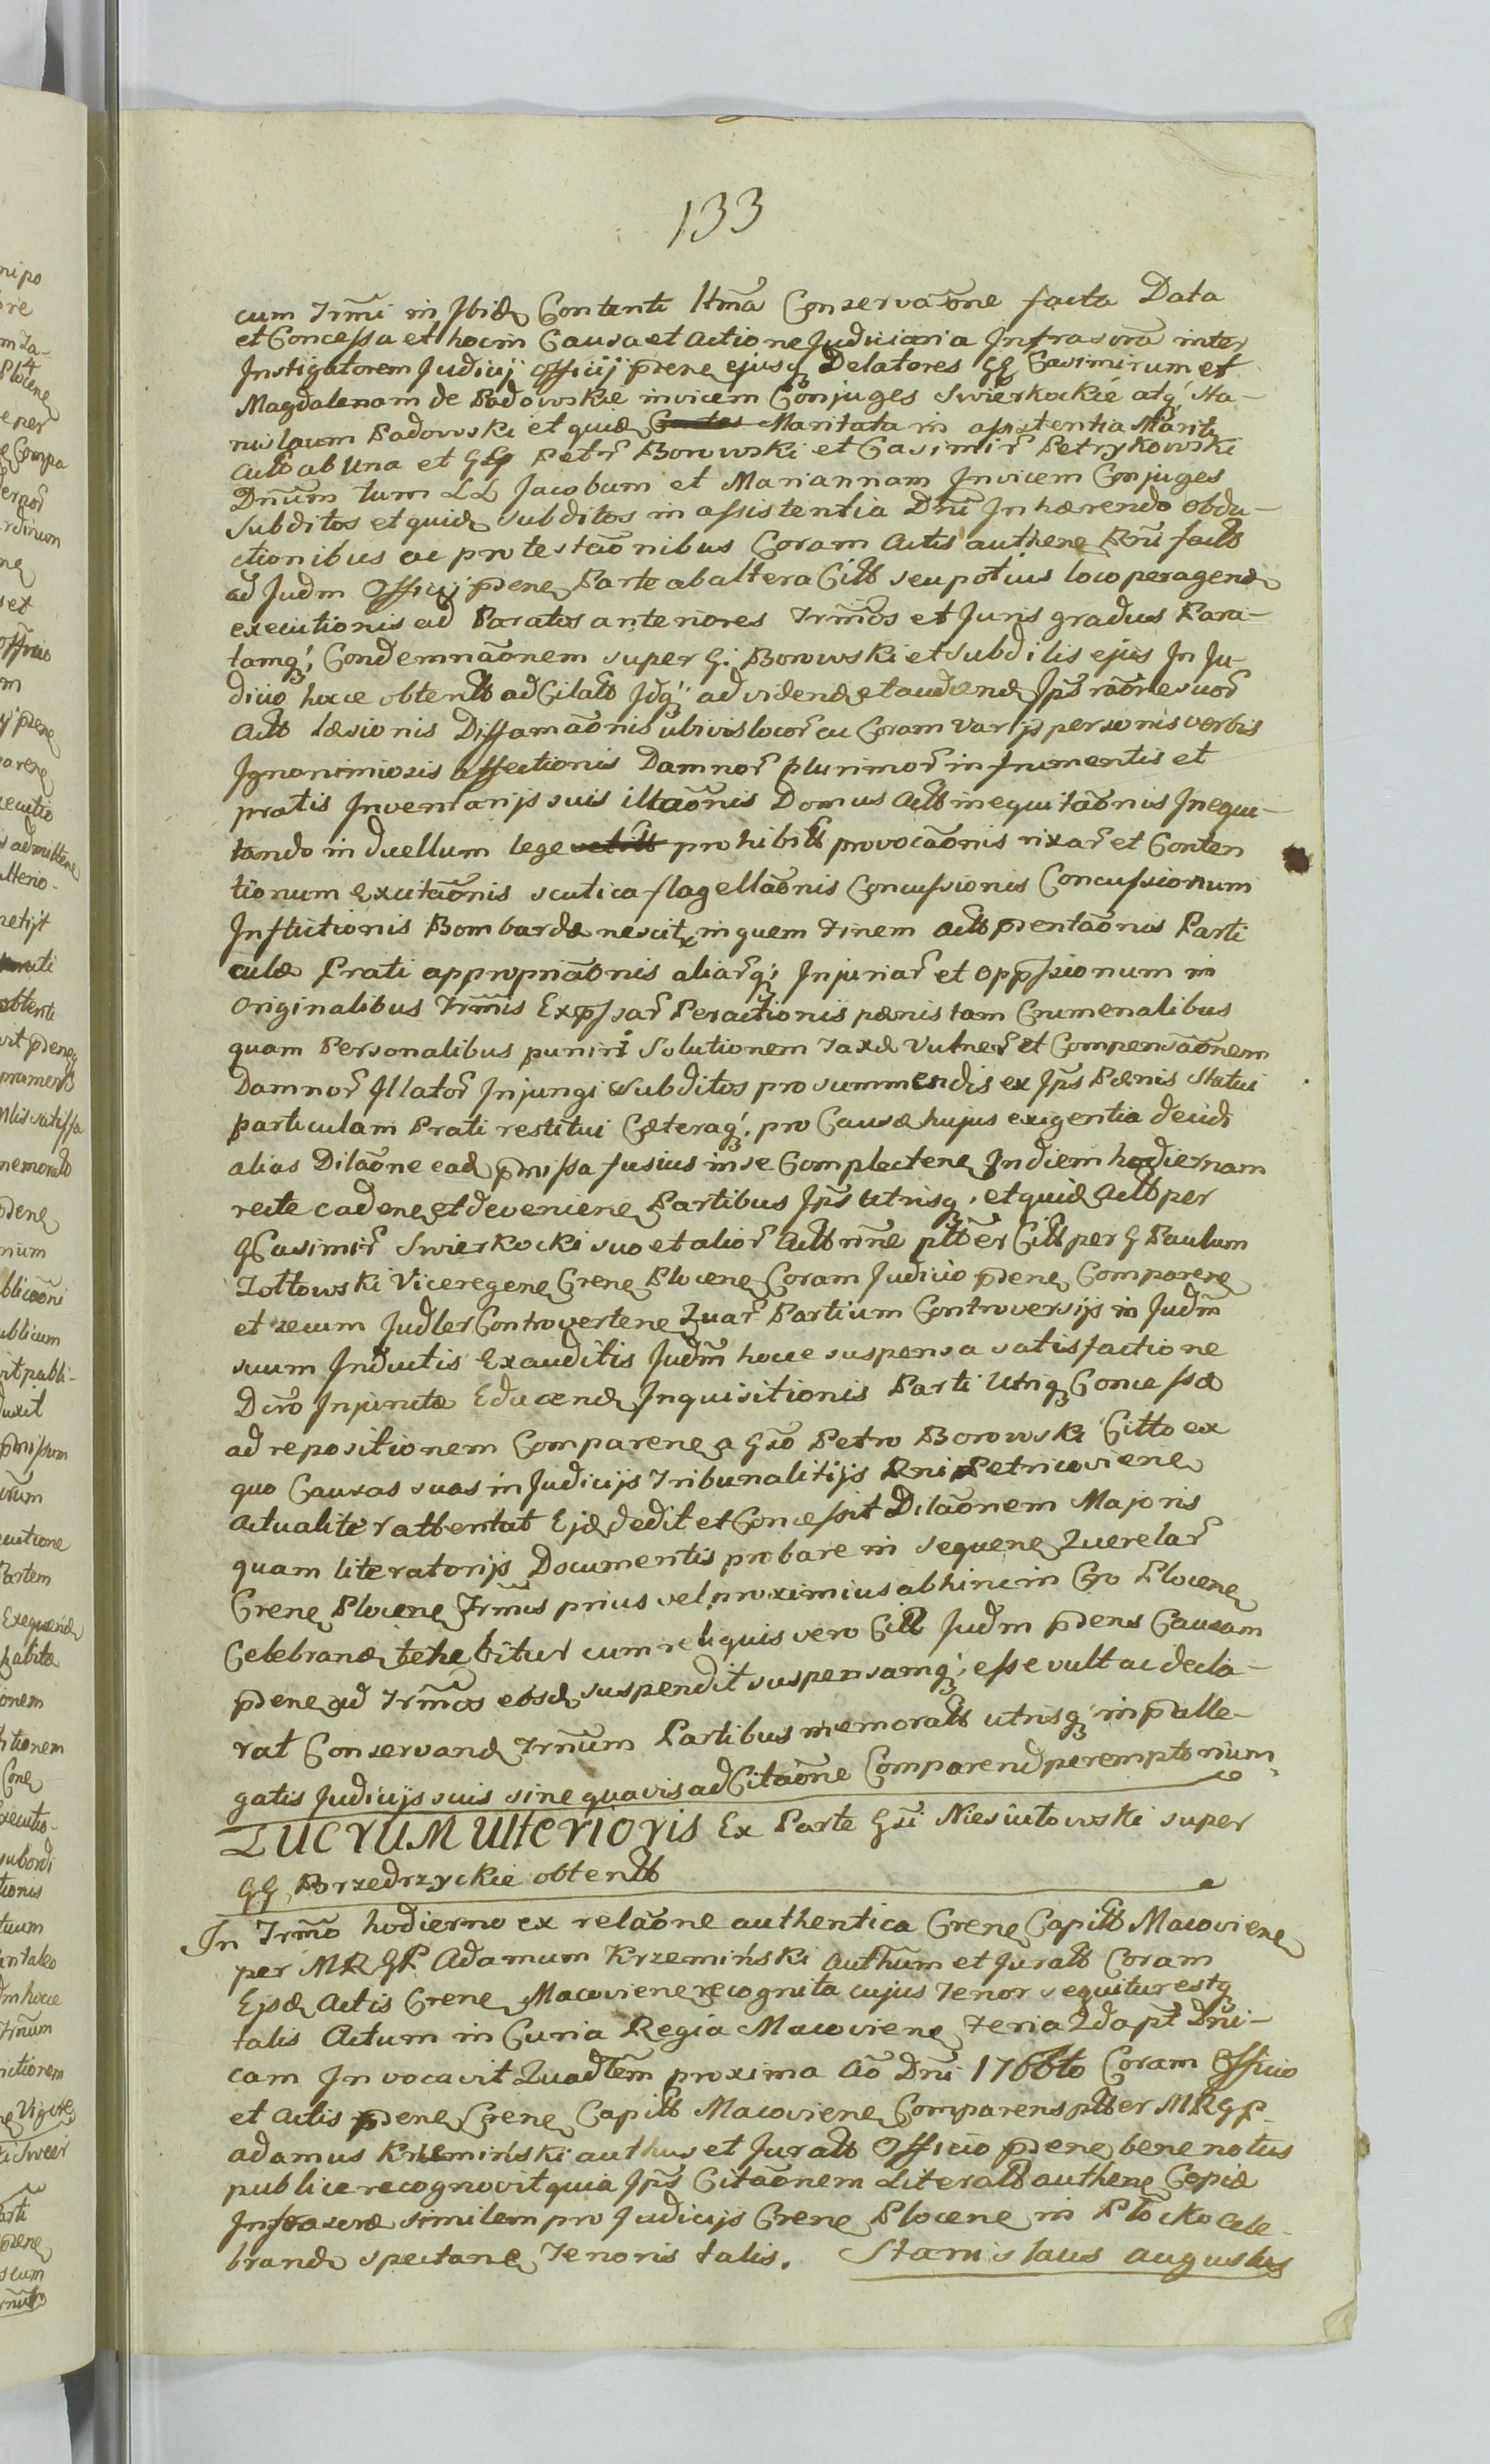 133
cum Trmi in Ibid Contenti Itma Conservaone facta Data
et Concessa et hocin Causa et Actione Judiciaria Infrascra inter
Instigatorem Judicij Officij pdene ejusq Delatores GG Casimirum et
Magdalenam de Padowskie invicem Conjuges Swierkockie atq; Sta-
nislaum Padowski et quid Maritata in assistentia Mariti
Actt ab Una et GG Petr Borowski et Casimir Petrykowski
Dnum tum LL Jacobum et Mariannam Invicem Conjuges
Subditos et quid subditos in assistentia Dni Inhærendo obdu-
ctionibus ac protestaonibus Coram Actis authene Rni factt
ad Judm Officij pdene Parte ab altera Citt seu potius loco peragend
executionis ad Paratos anteriores Trmos et Juris gradus Para-
tamq; Condemnaonem super G. Borowski et subditis ejus In Ju-
dicio hocce obtentt ad Citatt Idq; ad vidend et audiend Ips raone suor
Actt læsionis Diffamaonis ubivis locor ac Coram varijs personis verbis
Ignonimiosis affectionis Damnor plurimor in frumentis et
pratis Inventarijs suis illaonis Domus Actt inequitaonis Inequi-
tando in duellum lege prohibitt provocaonis rixar et Conten
tionum excitaonis scutica flagellaonis Concussionis Concussionum
Inflictionis Bombardæ nescitr in quem finem actt pdentaonis Parti
culæ Prati appropriaonis aliarq; Injuriar et oppssionum in
Originalibus Trmis Expssar Peractionis pænis tam Crumenalibus
quam Personalibus puniri Solutionem Taxæ Vulner et Compensaonem
Damnor Illator Injungi Subditos pro summendis ex Ips Pænis Statui
particulam Prati restitui Cæteraq; pro Causæ hujus exigentia decidi
alias Dilaone ead pmissa fusius in se Complectene In diem hodiernam
recte cadene et deveniene Partibus Ips Utrisq; et quid Actt per
G Casimir Swierkocki suo et alior Actt nne ptter Citt per G Paulum
Zołtowski Viceregene Crene Plocene Coram Judicio pdene Comparene
et secum Judler Controvertene Quar Partium Controversijs in Judm
suum Inductis Exauditis Judm hocce suspensa satisfactione
Dcro Injunctæ Educend Inquisitionis Parti Utriq Concessæ
ad repositionem Comparene a Gso Petro Borowski Citto ex
quo Causas suas in Judicijs Tribunalitijs Rni Petricoviene
actualiter attentat Ejd dedit et Concessit Dilaonem Majoris
quam literatorijs Documentis probare in sequene Querelar
Crene Plocene Trmis prius vel proximius abhinc in Cro Plocene
Celebrand tenebitur cum reliquis vero Citt Judm pdens Causam
pdene ad Trmos eosd suspendit suspensamq; esse vult ac decla-
rat Conservand Trnum Partibus memoratt utrisq; in palle-
gatis Judicijs suis sine quavis adCitaone Comparend peremptorium
Lucrum Ulterioris Ex Parte Gsi Niesciutowski super
GG Borzedrzyckie obtentt
In Trmo hodierno ex relaone authentica Crene Capitt Macoviene
per MRGP Adamum Krzemiński Authum et Juratt Coram
Ejsd Actis Crene Macoviene recognita cujus Tenor sequitur estq
talis Actum in Curia Regia Macoviene Feria 2da pt Dni-
cam Invocavit Quadtem proxima Ao Dni 1766to Coram Officio
et Actis pdene Crene Capitt Macoviene Comparens ptter MRGP
adamus Krzemiński authus et Juratt Officio pdene bene notus
publice recognovit quia Ips Citaonem Literatt authene Copiæ
Infrascræ similem pro Judicijs Crene Plocene in Płocko Cele-
brand spectane Tenoris talis. Stanislaus Augustus